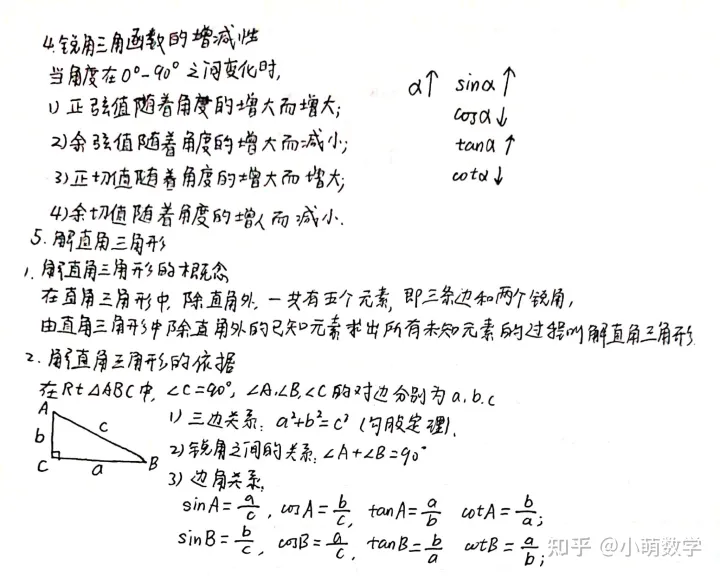 4.锐角三角函数的增减性
当角度在0°-90°之间变化时,
1)正弦值随着角度的增大而增大;
2)余弦值随着角度的增大而减小;
3)正切值随着角度的增大而增大;
4)余切值随着角度的增人而减小.
α↑ sinα↑
cosα↓
tanα↑
cotα↓
5.解直角三角形
1.解直角三角形的概念
在直角三角形中,除直角外,一共有五个元素,即三条边和两个锐角,
由直角三角形中除直角外的已知元素求出所有未知元素的过程叫解直角三角形.
2.解直角三角形的依据
在Rt△ABC中,∠C=90°,∠A,∠B,∠C的对边分别为a,b,c
A
b c
C a B
1)三边关系:a²+b²=c²(勾股定理).
2)锐角之间的关系:∠A+∠B=90°
3)边角关系:
sinA=a/c, cosA=b/c, tanA=a/b cotA=b/a;
sinB=b/c, cosB=a/c, tanB=b/a cotB=a/b;
知乎 @小萌数学